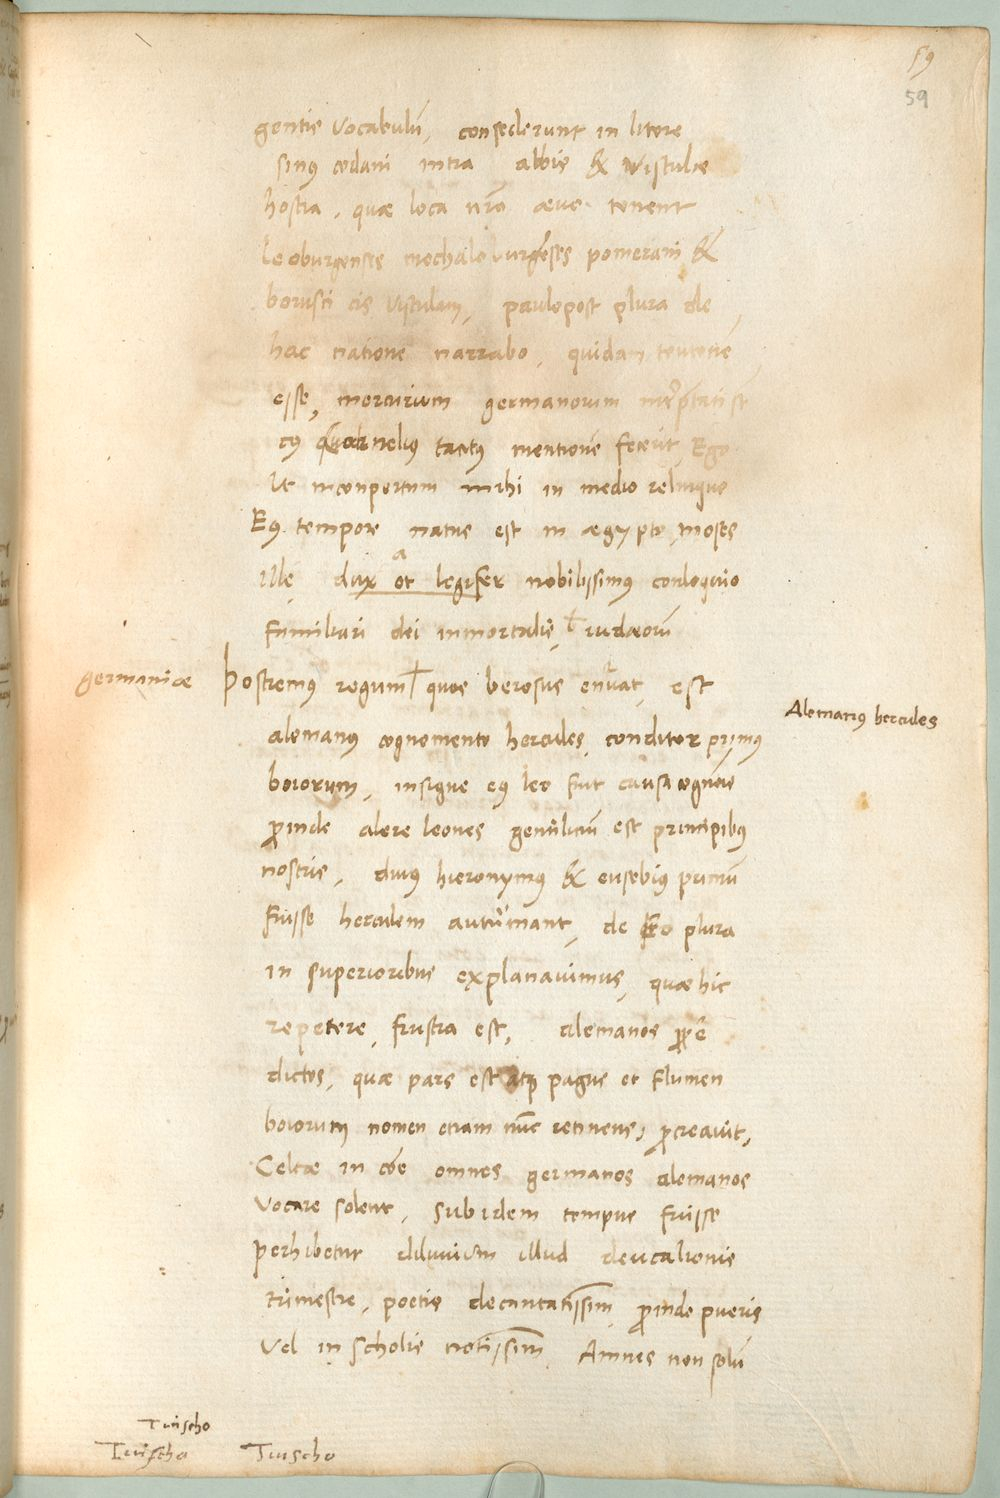 59
59
gentis Vocabulū, consederunt in litore
sinꝰ codani intra albis & Vistulæ
hostia, quæ loca nr̄o æuo tenent
leoburgenses mechaleburgēses pomerani &
borusci cis Vistulam, paulopost plura de
hac natione narrabo, quidam teutonē
esse, mercurium germanorum
cꝰ cornelius tacitꝰ mentionē fecerit, Ego
Ut inconpertum mihi in medio relinquo
Eꝰ tempore natus est in ægypto, moses
ille dux at legifer nobilissimꝰ conloquio
familiari dei inmortalis, iudæorū
germaniæ
Postremꝰ regum quos berosus enūat, est
Alemanꝰ hercules
alemanꝰ cognomento hercules, conditor primus
boiorum, insigne eꝰ leo fuit causa cognōis
ꝓinde alere leones gentiliciū est principibꝰ
nostris, diuꝰ hieronymꝰ & eusebiꝰ primū
fuisse herculem autumant, de quo plura
in superioribus explanauimus, quæ hic
repetere, frustra est, alemanos ꝓprie
dictos, quæ pars est atqꝫ pagus et flumen
boiorum nomen etiam nūc retinens, ꝓcreauit,
Celtæ in cōe omnes germanos alemanos
Vocare solent, sub idem tempus fuisse
perhibetur diluuium illud deucalionis
trimestre, poetis decantatissim̄, ꝓinde pueris
Vel in scholis notissim̄, Amnes non solū
Tuischo
Tuischo Tuischo